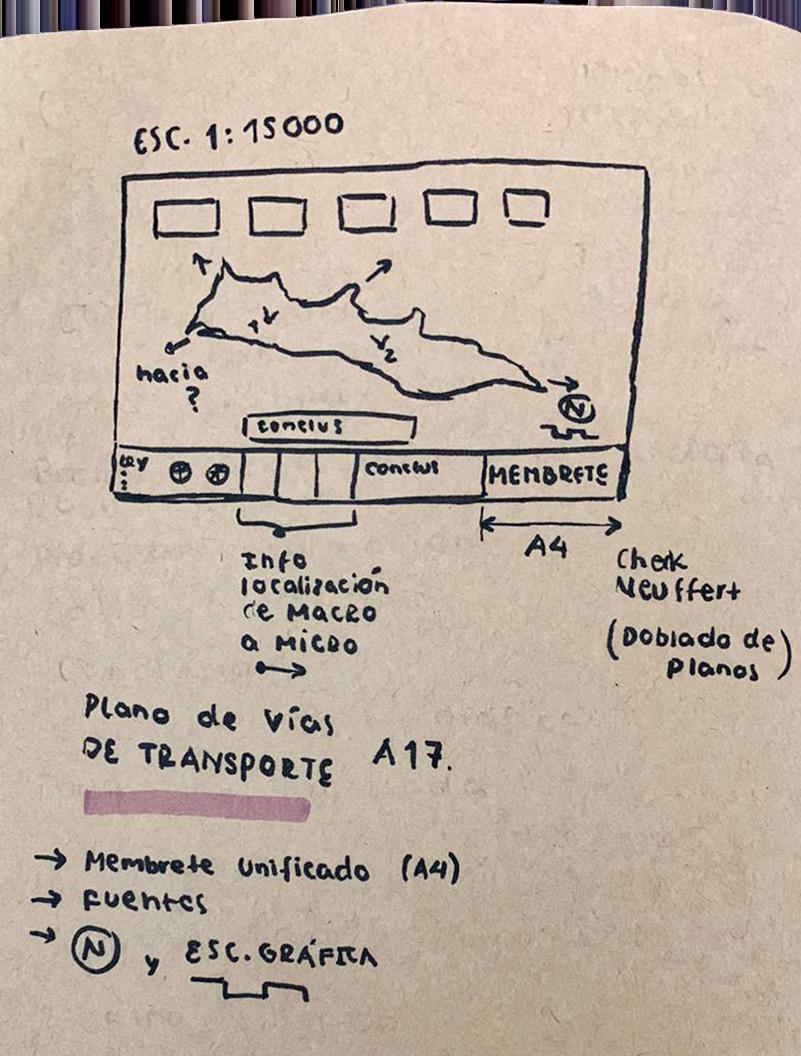 ESC. 1:15000
hacia
?
V
V2
N
conclus
Ley
conclus
MEMBRETE
A4
Info
localización
de MACRO
a MICRO
Check
Neuffert
(Doblado de
Planos)
Plano de Vías
DE TRANSPORTE A17.
→ Membrete Unificado (A4)
→ Fuentes
→ N y ESC. GRÁFICA